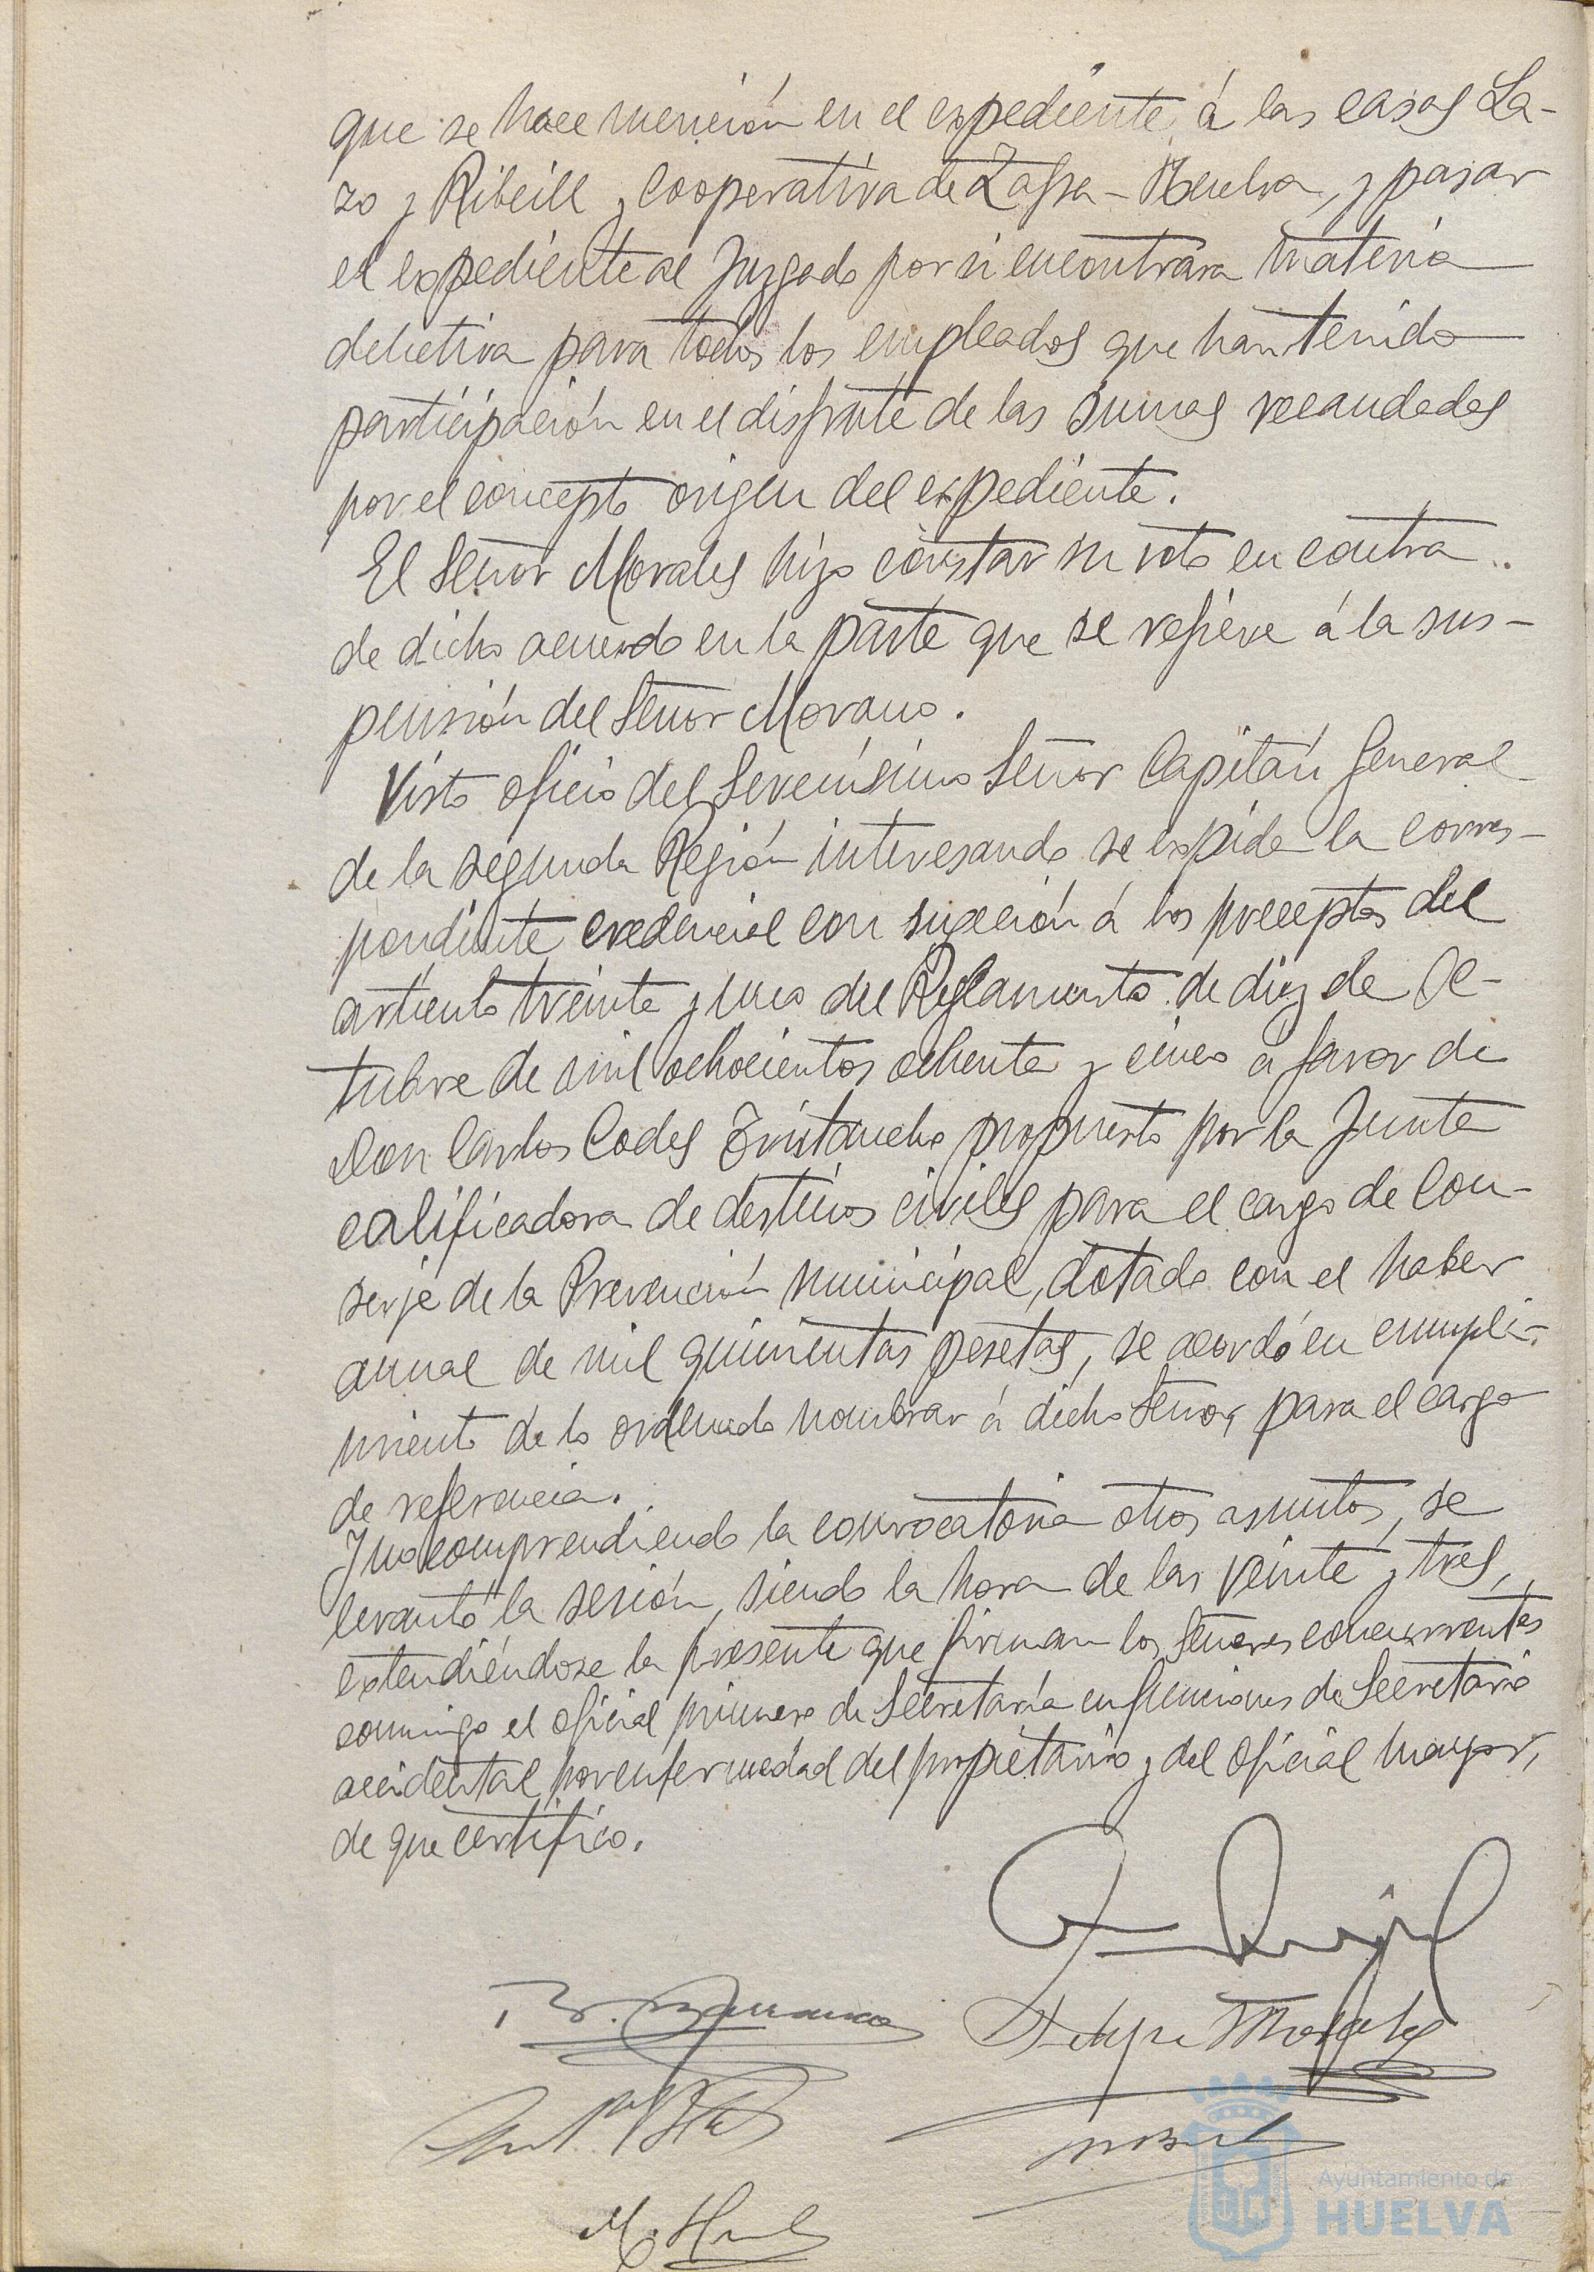 que se hace mención en el expediente á las casas La-
zo y Ribeill y Cooperativa de Zafra-Huelva, y pasar
el expediente al Juzgado por si encontrára materia
delictiva para todos los empleados que han tenido
participación en el disfrute de las sumas recaudadas
por el concepto origen del expediente.
El Señor Morales hizo constar su voto en contra
de dicho acuerdo en la parte que se refiere á la sus-
pensión del Señor Morano.
Visto oficio del Serenísimo Señor Capitán General
de la segunda Región interesando se expida la corres-
pondiente credencial con sugeción á los preceptos del
artículo treinta y uno del Reglamento de diez de Oc-
tubre de mil ochocientos ochenta y cinco a favor de
Don Carlos Codes Tristancho propuesto por la Junta
calificadora de destinos civiles para el cargo de Con-
serje de la Prevención municipal, dotado con el haber
anual de mil quinientas pesetas, se acordó en cumpli-
miento de lo ordenado nombrar á dicho Señor, para el cargo
de referencia.
Y no comprendiendo la convocatoria otros asuntos, se
levantó la sesión, siendo la hora de las veinte y tres,
extendiéndose la presente que firman los Señores concurrentes
conmigo el oficial primero de Secretaría en funciones de Secretario
accidental por enfermedad del propietario y del oficial mayor,
de que certifico.
Felipe Morales
Ayuntamiento de
HUELVA